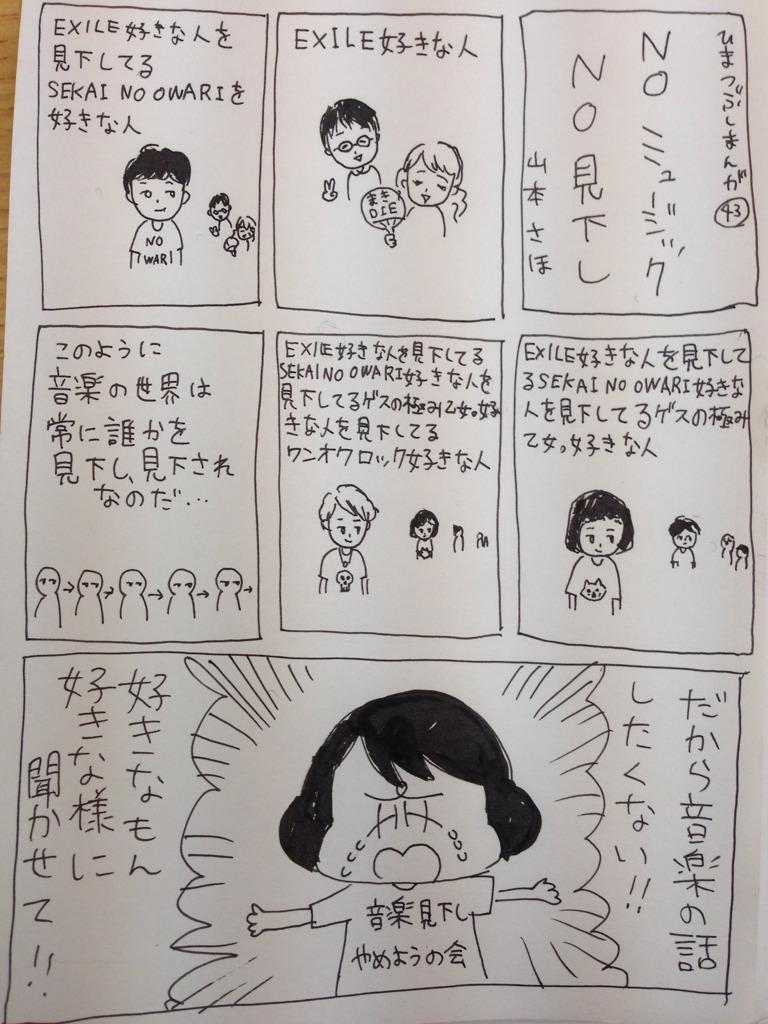 ひまつぶしまんが
43
NO ミュージック
NO 見下し
山本 さほ
EXILE好きな人
まき
DIE
EXILE好きな人を
見下してる
SEKAI NO OWARIを
好きな人
NO
WARI
EXILE好きな人を見下して
るSEKAI NO OWARI好きな
人を見下してるゲスの極み
乙女。好きな人
EXILE好きな人を見下してる
SEKAI NO OWARI好きな人を
見下してるゲスの極み乙女。好
きな人を見下してる
ワンオクロック好きな人
このように
音楽の世界は
常に誰かを
見下し、見下され
なのだ…
だから音楽の話
したくない!!
音楽見下し
やめようの会
好きなもん
好きな様に
聞かせて!!